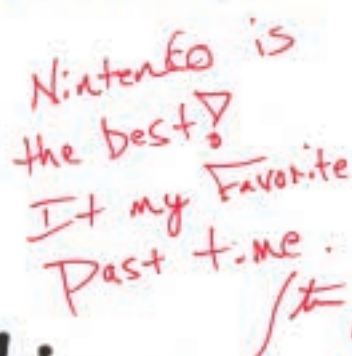 Nintendo is
the best!
It my Favorite
Past time.